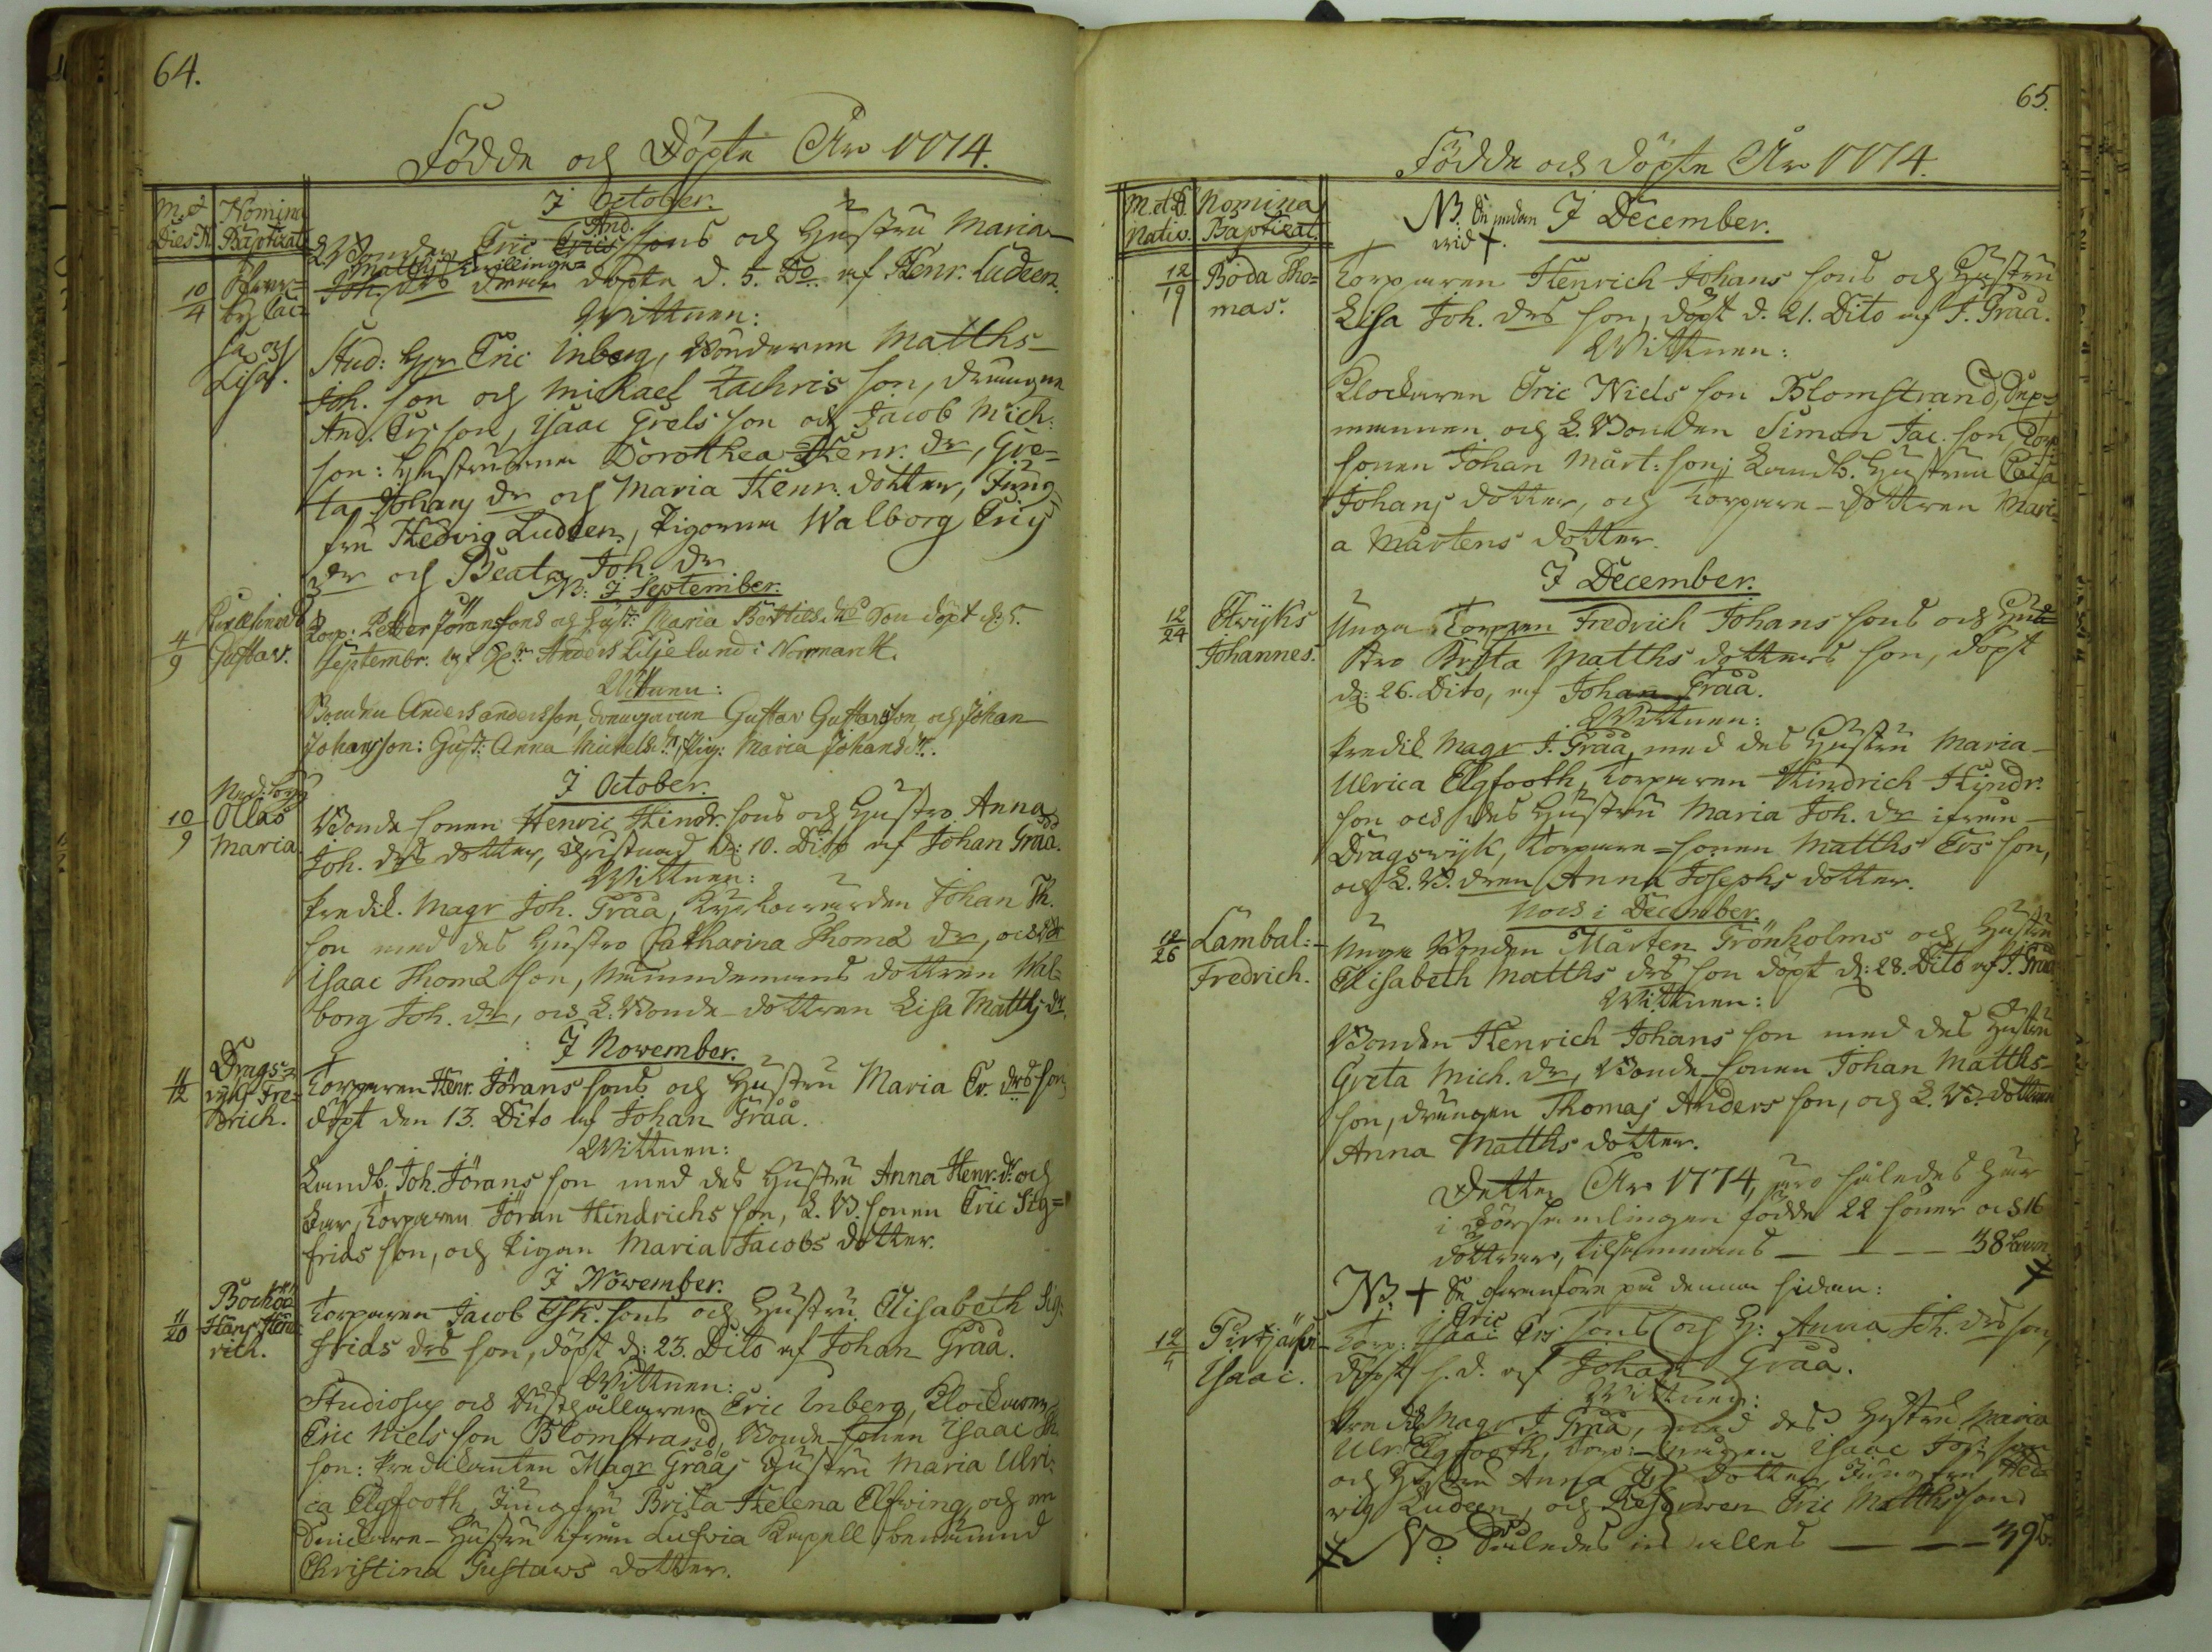 64.
Födde och Döpte Åhr 1774.
M. & Dies N.
Nomina Baptizat.
I October.
Bonden Eric And. sons och Hustru Maria
Matths drs Twillingar döpte d. 5. Do. af Henr. Ludeen.
10/4
Lisa.
Wittnen:
Stud: Herr Eric Inberg, Bönderne Matths
Joh. son och Mickael Zachris son, drängne
And. Ers son, Isaac Grels son och Jacob Mich:
son: Hustrurna Dorothea Henr. dr, Gre=
ta Johans dr och Maria Henr. dotter, Jung=
fru Hedvig Ludeen, Pigorna Walborg Eris
dr och Beata Joh. dr
NB: I September.
4/9
Gustav.
Torp: Petter Jöransons och Hust: Maria Bertils drs Son döpt d: 5.
Septembr. af Hr. Anders Liljelund i Norrmark.
Wittnen:
Bonden Anders andersson, drengarne Gustav Gustavsson och Johan
Johansson: Hust: Anna Michels dr, Pig: Maria Johans dr.
I October.
10/9
Ollas
Maria.
Bonde sonen Henric Hindr. sons och Hustro Anna
Joh. drs dotter, Christnad d: 10. Dito af Johan Gråå.
Wittnen:
Predik. Magr Joh. Gråå, Kyrkowärden Johan Th.
son med des Hustro Catharina Thomæ dr, och
Isaac Thomæ son, Nämndemans dottren Wal=
borg Joh. dr, och L. Bonde-dottren Lisa Matths dr.
I November.
11/12
Drags=
wyks Fre=
drich.
Torparen Henr. Jörans sons och Hustru Maria Er. drs son,
döpt den 13. Dito af Johan Gråå.
Wittnen:
Landb. Joh. Jörans son med des Hustru Anna Henr. dr och
Torparen Jöran Hindrichs son, L. B. sonen Eric Sig=
frids son, och Pigan Maria Jacobs dotter.
I November.
11/20
Hans Hen=
rich.
Torparen Jacob Esk. sons och Hustru Elisabeth Sig:
frids drs son, döpt d: 23. Dito af Johan Gråå.
Wittnen:
Studiosus och Eric Inberg, Klockaren
Eric Niels son Blomstrand, Bonde-sonen Isaac
son: Predikanten Magr Gråås Hustru Maria Ulri=
ca Elgfooth, Jungfru Brita Helena Elfwing, och en
Hustru ifrån Luhvia Kapell benämnd
Christina Gustaws dotter.
65.
Födde och döpte Åhr 1774.
M. et D. Nativ.
Nomina Baptizat.
NB. Se nedan wid +.
I December.
12/19
Böda Tho=
mas.
Torparen Henrich Johans sons och Hustru
Lisa Joh. drs son, döpt d. 21. Dito af J. Gråå.
Wittnen:
Klockaren Eric Niels son Blomstrand,
mannen och L. Bonden Simon Jac. son, Torp:
sonen Johan Mårt: son; Landb. Hustrun Caisa
Johans dotter, och Torpare-dottren Mari=
a Mårtens dotter.
I December.
12/24
Ehwijks
Johannes.
Unga Torparen Fredrich Johans sons och Hus=
tro Brita Matths dotters son, döpt
d: 26. Dito, af Johan Gråå.
Wittnen:
Predik. Magr J. Gråå med des Hustru Maria
Ulrica Elgfooth, Torparen Hindrich Hindr:
son och des Hustru Maria Joh. dr ifrån
Dragswyk, Torpare=sonen Matths Ers son,
och L. B. dren Anna Josephs dotter.
Noch i December.
12/26
Lambal:
Fredrich.
Unga Bonden Mårten Grönholms och Hustru
Elisabeth Matths drs son döpt d: 28. Dito af J. Gråå
Wittnen:
Bonden Henrich Johans son med des Hustru
Greta Mich. dr, Bonde sonen Johan Matths
son, drängen Thomas Anders son, och L. B. dottren
Anna Matths dotter.
Detta Åhr 1774, äro således här
i Församlingen födde 22 söner och 16
döttrar, tilsammans — — — 38 barn.
NB. + Se ofvanföre på denna sidan:
12/4
Isaac.
Torp: Eric Ers sons och H: Anna Joh. drs son,
döpt s. d. af Johan Gråå.
Wittnen:
Predik Magr J. Gråå, med des Hustru Maria
Ulr. Elgfooth, Torp: Isaac Jos: son
och Hustru Anna dotter, Jungfru Hed=
vig Ludeen, och Eric Matths son
NB: Således in alles — — — 39 b.